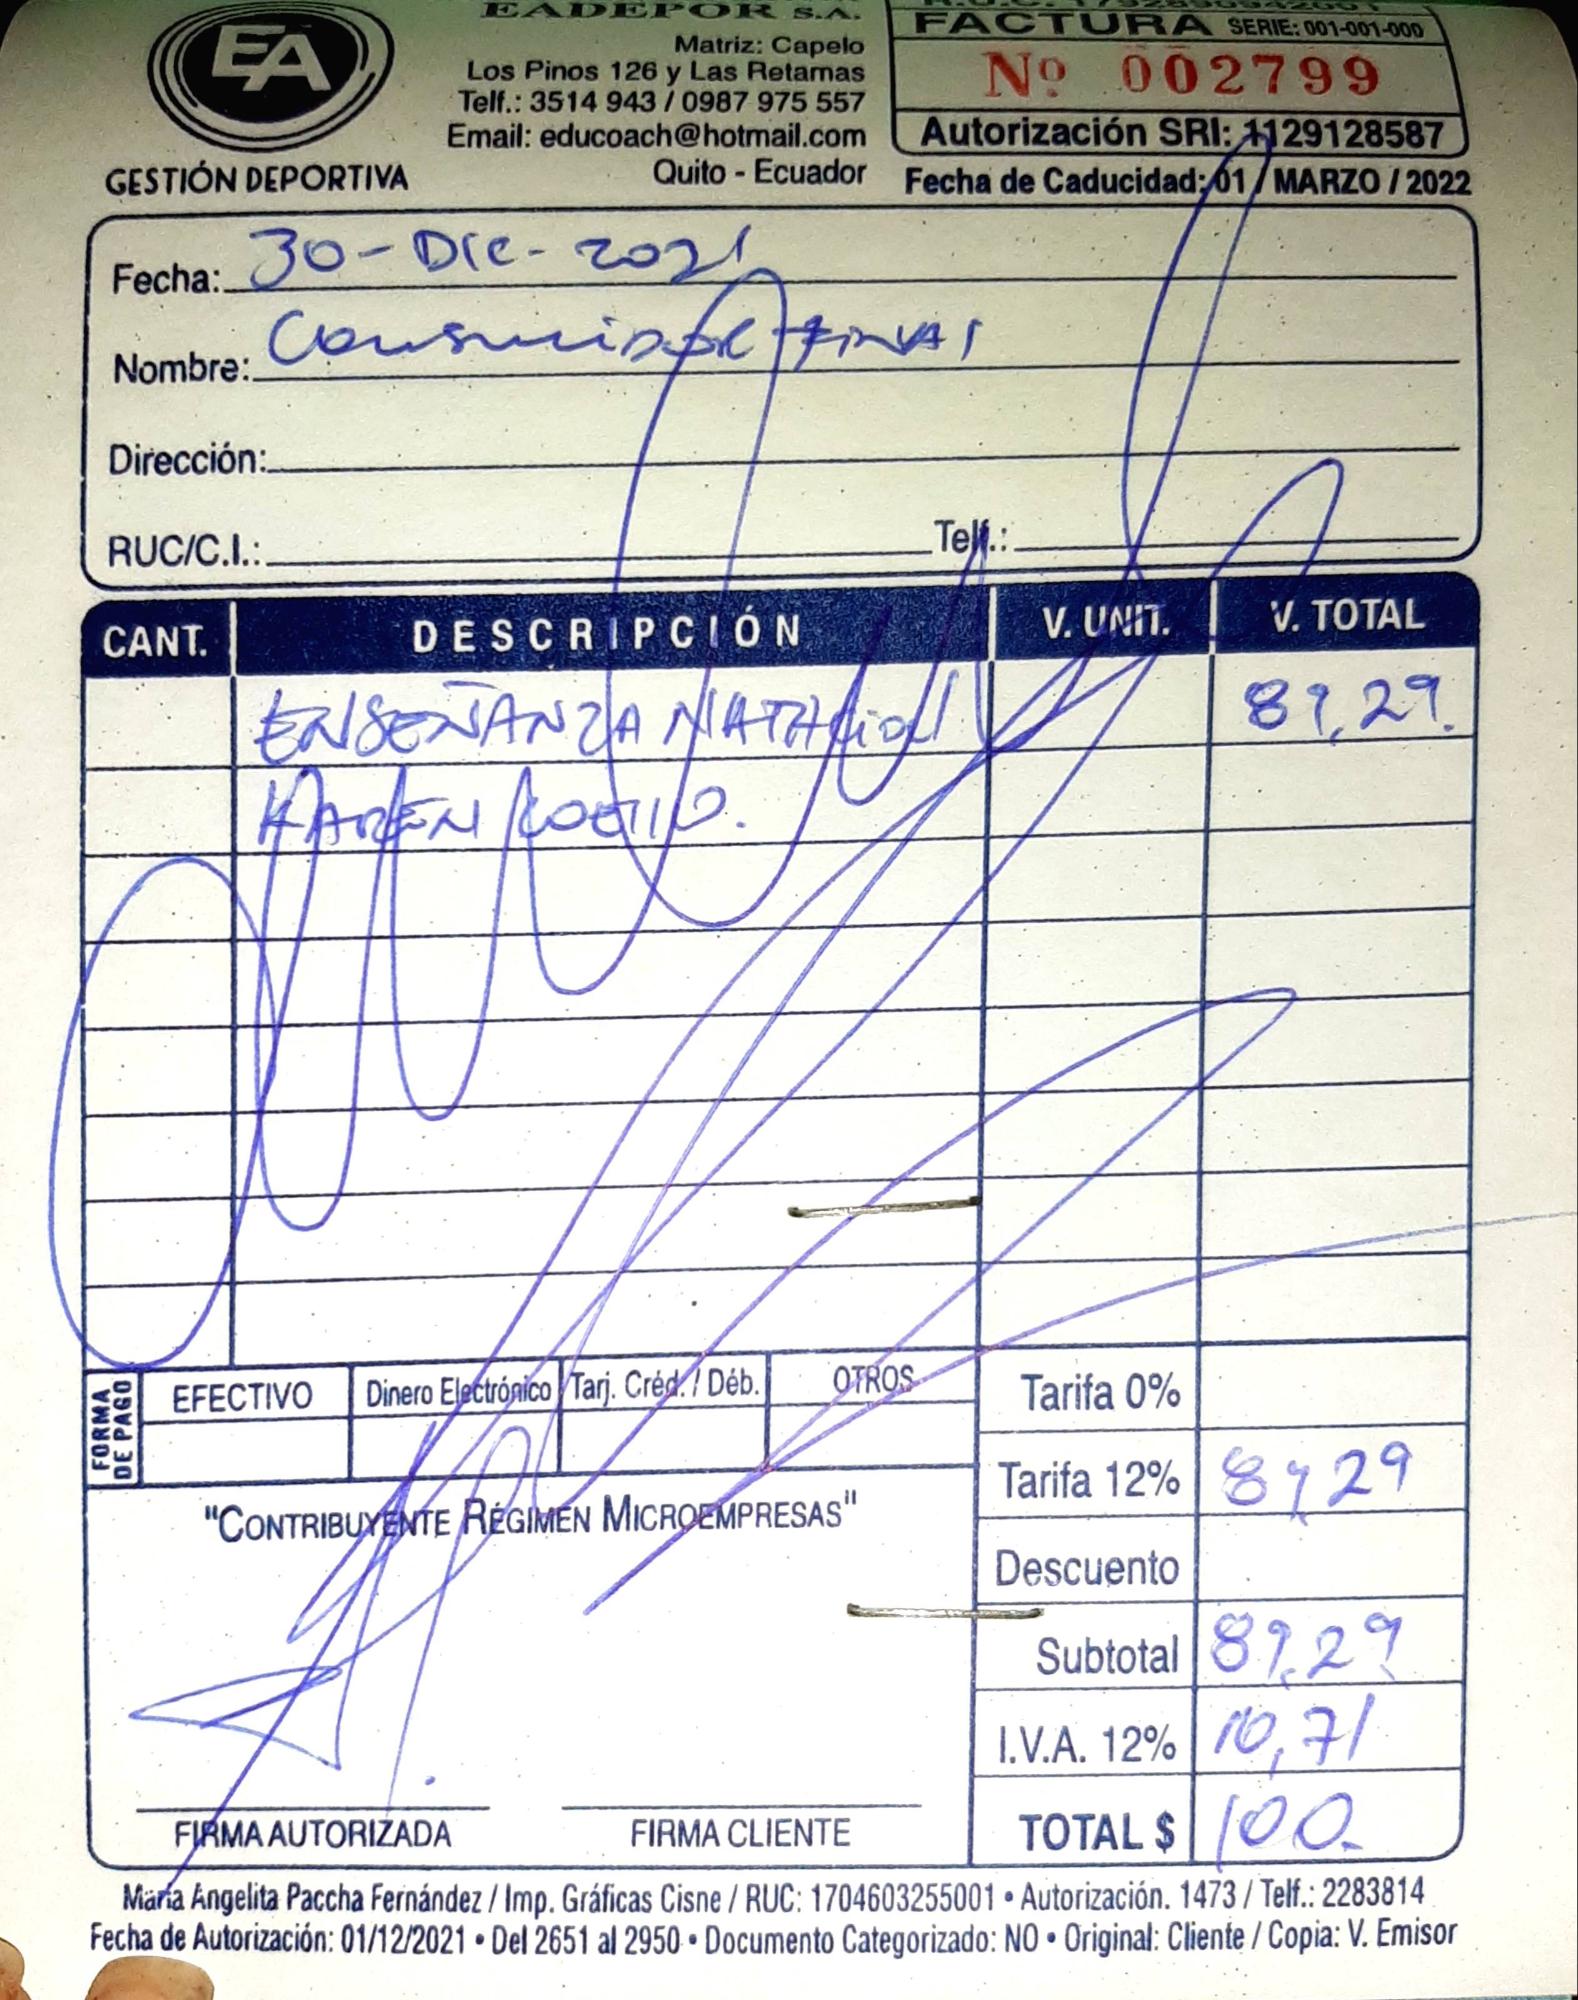 EA
GESTIÓN DEPORTIVA
EADEPOR S.A.
Matriz: Capelo
Los Pinos 126 y Las Retamas
Telf.: 3514 943 / 0987 975 557
Email: educoach@hotmail.com
Quito - Ecuador
FACTURA SERIE: 001-001-000
Nº 002799
Autorización SRI: 1129128587
Fecha de Caducidad: 01 / MARZO / 2022
Fecha: 30-DIC-2021
Nombre: Consumidor FINAl
Dirección:
RUC/C.I.: Telf.:
CANT. DESCRIPCIÓN V. UNIT. V. TOTAL
ENSEÑANZA NATACION 89,29.
KAREN COELLO.
FORMA DE PAGO
EFECTIVO Dinero Electrónico Tarj. Créd. / Déb. OTROS
Tarifa 0%
Tarifa 12% 89,29
"CONTRIBUYENTE RÉGIMEN MICROEMPRESAS"
Descuento
Subtotal 89,29
I.V.A. 12% 10,71
TOTAL $ 100.
FIRMA AUTORIZADA FIRMA CLIENTE
María Angelita Paccha Fernández / Imp. Gráficas Cisne / RUC: 1704603255001 • Autorización. 1473 / Telf.: 2283814
Fecha de Autorización: 01/12/2021 • Del 2651 al 2950 • Documento Categorizado: NO • Original: Cliente / Copia: V. Emisor